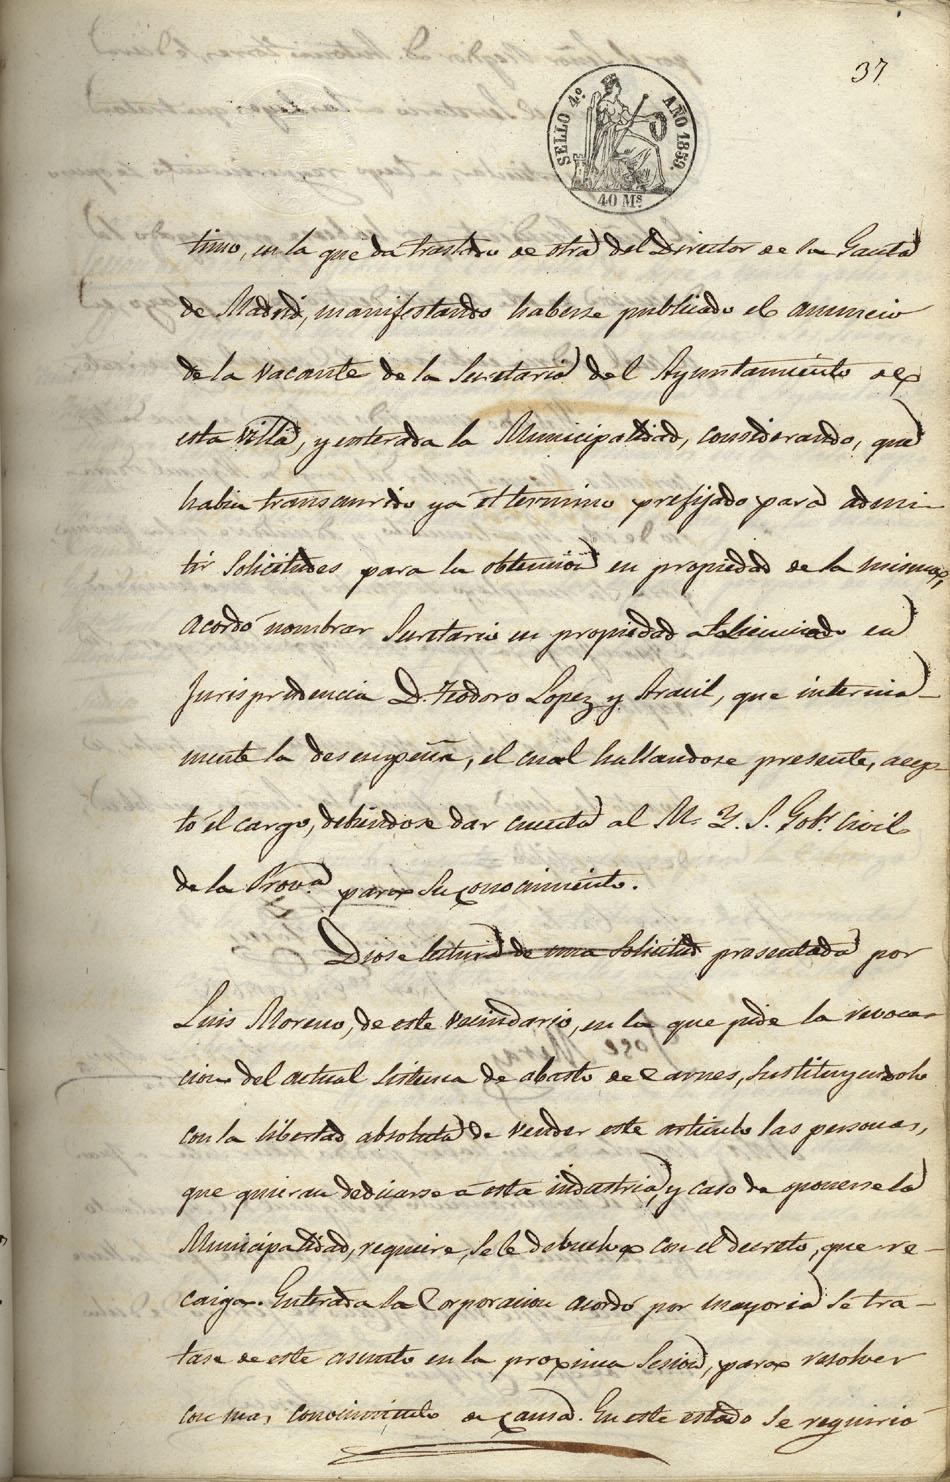 37
SELLO 4.º AÑO 1859.
40 Ms
timo, en la que da traslado de otra del Director de la Gaceta
de Madrid, manifestando haberse publicado el anuncio
de la vacante de la Secretaria del Ayuntamiento de
esta villa, y enterada la Municipalidad, considerando, que
habia transcurrido ya el termino prefijado para admi-
tir solicitudes para la obtencion en propiedad de la misma,
acordó nombrar Secretario en propiedad al licenciado en
Jurisprudencia D. Teodoro Lopez y Aracil, que interina-
mente la desempeña, el cual hallandose presente, acep-
tó el cargo, debiendose dar cuenta al M. Y. S. Gobr. Civil
de la Prova. para su conocimiento.
Diose lectura de una solicitud presentada por
Luis Moreno, de este vecindario, en la que pide la revoca-
cion del actual sistema de abasto de Carnes, sustituyendole
con la libertad absoluta de vender este articulo las personas,
que quieran dedicarse a esta industria, y caso de oponerse la
Municipalidad, requiere, se le debuelva con el decreto, que re-
caiga. Enterada la Corporacion acordó por mayoria se tra-
tase de este asunto en la proxima Sesion, para resolver
con mas conocimiento de causa. En este estado se requirió